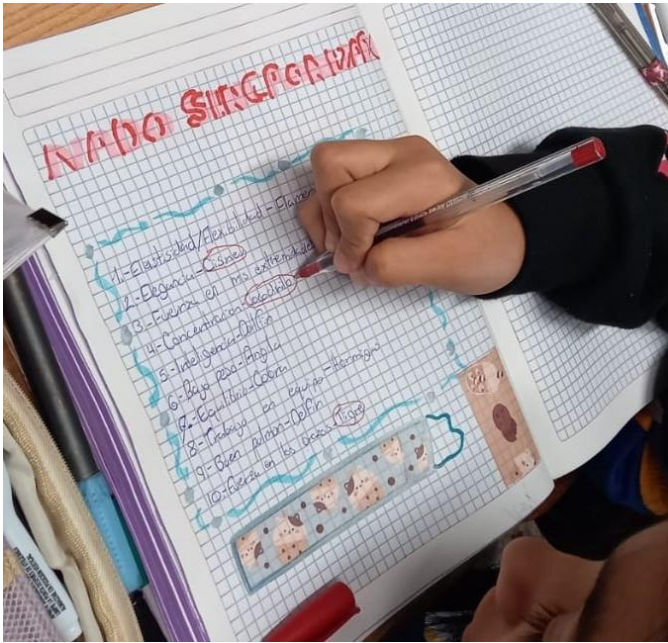 NADO SINCRONIZA
1.-Elasticidad/Flexibilidad-Flamen
2.-Elegancia-Cisne
3.-Fuerza en mis extremidades
4.-Concentración-Cocodrilo
5.-Inteligencia-Delfín
6.-Bajo peso-Anguila
7.-Equilibrio-Cabra
8.-Trabajo en equipo-Hormiga
9.-Buen pulmon-Delfín
10.-Fuerza en los brazos-Tigre